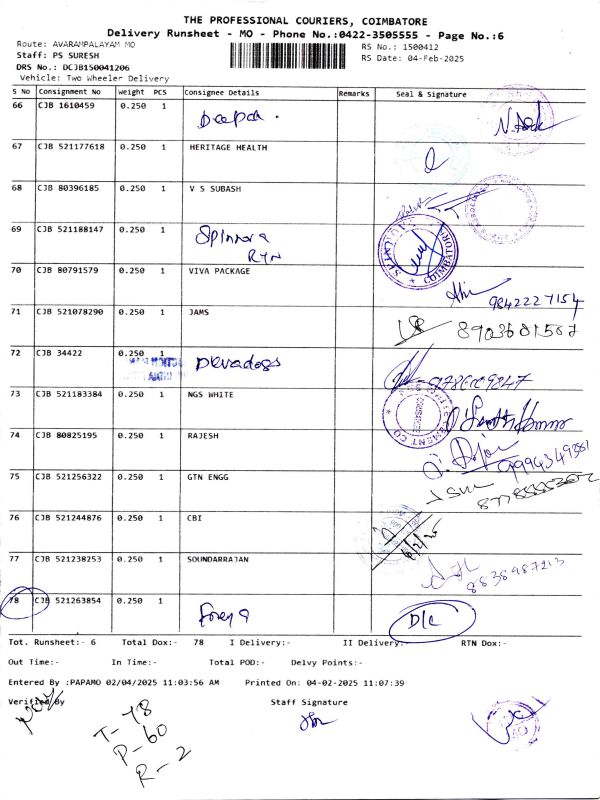 THE PROFESSIONAL COURIERS, COIMBATORE
Delivery Runsheet - MO - Phone No.:0422-3505555 - Page No.:6
Route: AVARAMPALAYAM MO
RS No.: 1500412
Staff: PS SURESH
RS Date: 04-Feb-2025
DRS No.: DCJB150041206
Vehicle: Two Wheeler Delivery
S No Consignment No Weight PCS Consignee Details Remarks Seal & Signature
66 CJB 1610459 0.250 1 Deepak
67 CJB 521177618 0.250 1 HERITAGE HEALTH
68 CJB 80396185 0.250 1 V S SUBASH
69 CJB 521188147 0.250 1 Spinnora
COIMBATORE
70 CJB 80791579 0.250 1 VIVA PACKAGE
9842227154
71 CJB 521078290 0.250 1 JAMS
8903681567
72 CJB 34422 0.250 1 Devadoss
73 CJB 521183384 0.250 1 NGS WHITE
74 CJB 80825195 0.250 1 RAJESH
9994349381
75 CJB 521256322 0.250 1 GTN ENGG
76 CJB 521244876 0.250 1 CBI
6/2/25
77 CJB 521238253 0.250 1 SOUNDARRAJAN
8838987213
78 CJB 521263854 0.250 1
D/C
Tot. Runsheet:- 6 Total Dox:- 78 I Delivery:- II Delivery:- RTN Dox:-
Out Time:- In Time:- Total POD:- Delvy Points:-
Entered By :PAPAMO 02/04/2025 11:03:56 AM Printed On: 04-02-2025 11:07:39
Verified By Staff Signature
T - 78
P - 60
R - 2